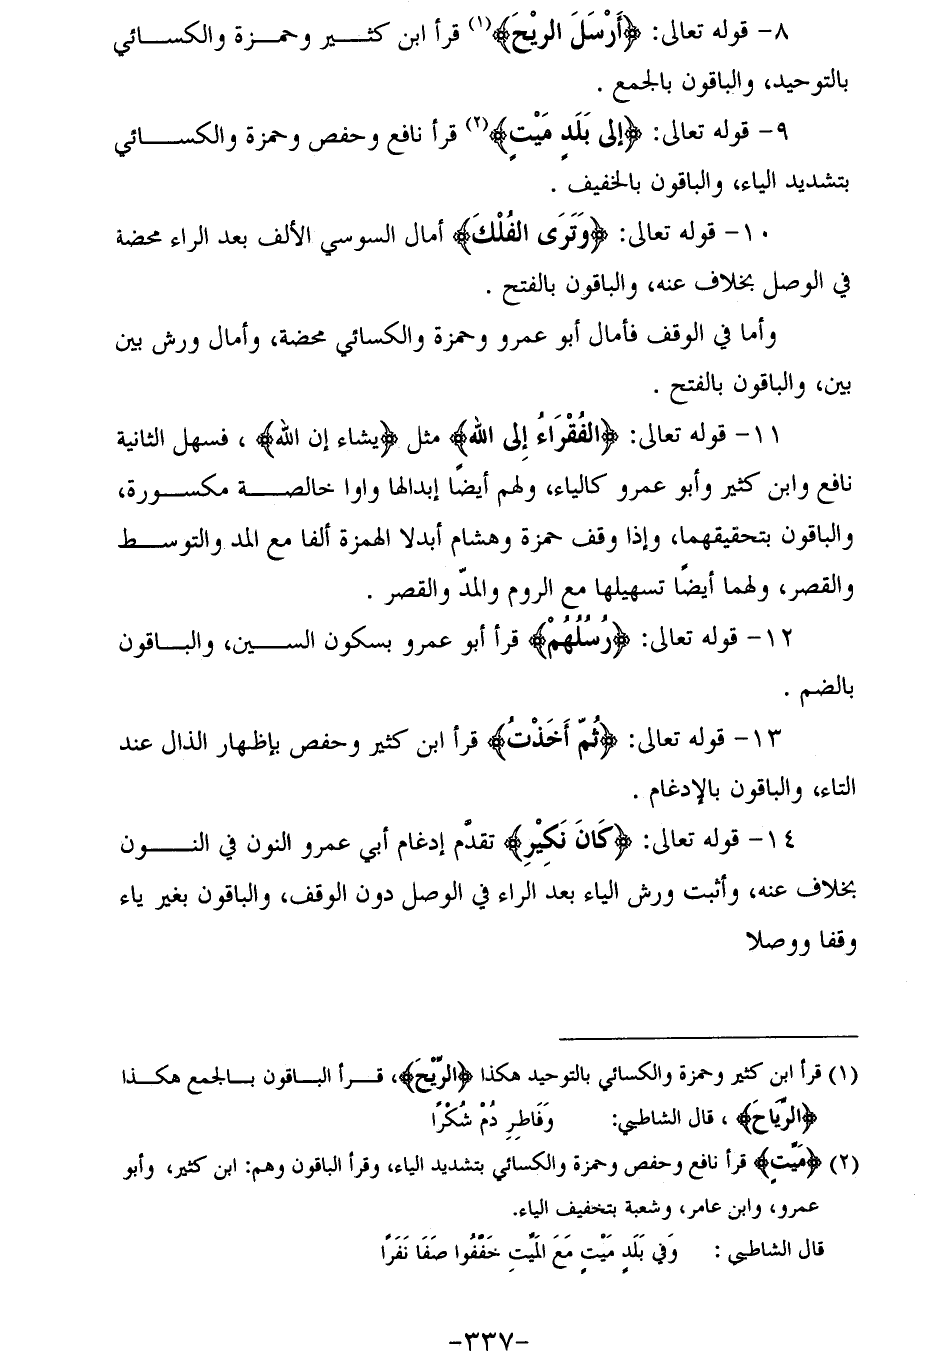 ٨- قوله تعالى: ﴿أَرْسَلَ الرِيْحَ﴾(١) قرأ ابن كثير وحمزة والكسائي
بالتوحيد، والباقون بالجمع .
٩- قوله تعالى: ﴿إلى بَلَدٍ مَيْتٍ﴾(٢) قرأ نافع وحفص وحمزة والكسائي
بتشديد الياء، والباقون بالخفيف .
١٠- قوله تعالى: ﴿وَتَرَى الفُلْكَ﴾ أمال السوسي الألف بعد الراء محضة
في الوصل بخلاف عنه، والباقون بالفتح .
وأما في الوقف فأمال أبو عمرو وحمزة والكسائي محضة، وأمال ورش بين
بين، والباقون بالفتح .
١١- قوله تعالى: ﴿الفُقْرَاءُ إِلى الله﴾ مثل ﴿يشاء إن الله﴾ ، فسهل الثانية
نافع وابن كثير وأبو عمرو كالياء، ولهم أيضًا إبدالها واوا خالصة مكسورة،
والباقون بتحقيقهما، وإذا وقف حمزة وهشام أبدلا الهمزة ألفا مع المد والتوسط
والقصر، ولهما أيضًا تسهيلها مع الروم والمدّ والقصر .
١٢- قوله تعالى: ﴿رُسُلُهُمْ﴾ قرأ أبو عمرو بسكون السين، والباقون
بالضم .
١٣- قوله تعالى: ﴿ثُمّ أَخَذْتُ﴾ قرأ ابن كثير وحفص بإظهار الذال عند
التاء، والباقون بالإدغام .
١٤- قوله تعالى: ﴿كَانَ نَكِيْرِ﴾ تقدَّم إدغام أبي عمرو النون في النون
بخلاف عنه، وأثبت ورش الياء بعد الراء في الوصل دون الوقف، والباقون بغير ياء
وقفا ووصلا
(١) قرأ ابن كثير وحمزة والكسائي بالتوحيد هكذا ﴿الرِّيْحَ﴾، قرأ الباقون بالجمع هكذا
﴿الرِّيَاحَ﴾ ، قال الشاطبي: وَفَاطِرِ دُمْ شُكْرًا
(٢) ﴿مَيِّتٍ﴾ قرأ نافع وحفص وحمزة والكسائي بتشديد الياء، وقرأ الباقون وهم: ابن كثير، وأبو
عمرو، وابن عامر، وشعبة بتخفيف الياء.
قال الشاطبي : وَفي بَلَدٍ مَيْتٍ مَعَ المَيِّتِ خَفَّفُوا صَفَا نَفَرًا
-٣٣٧-